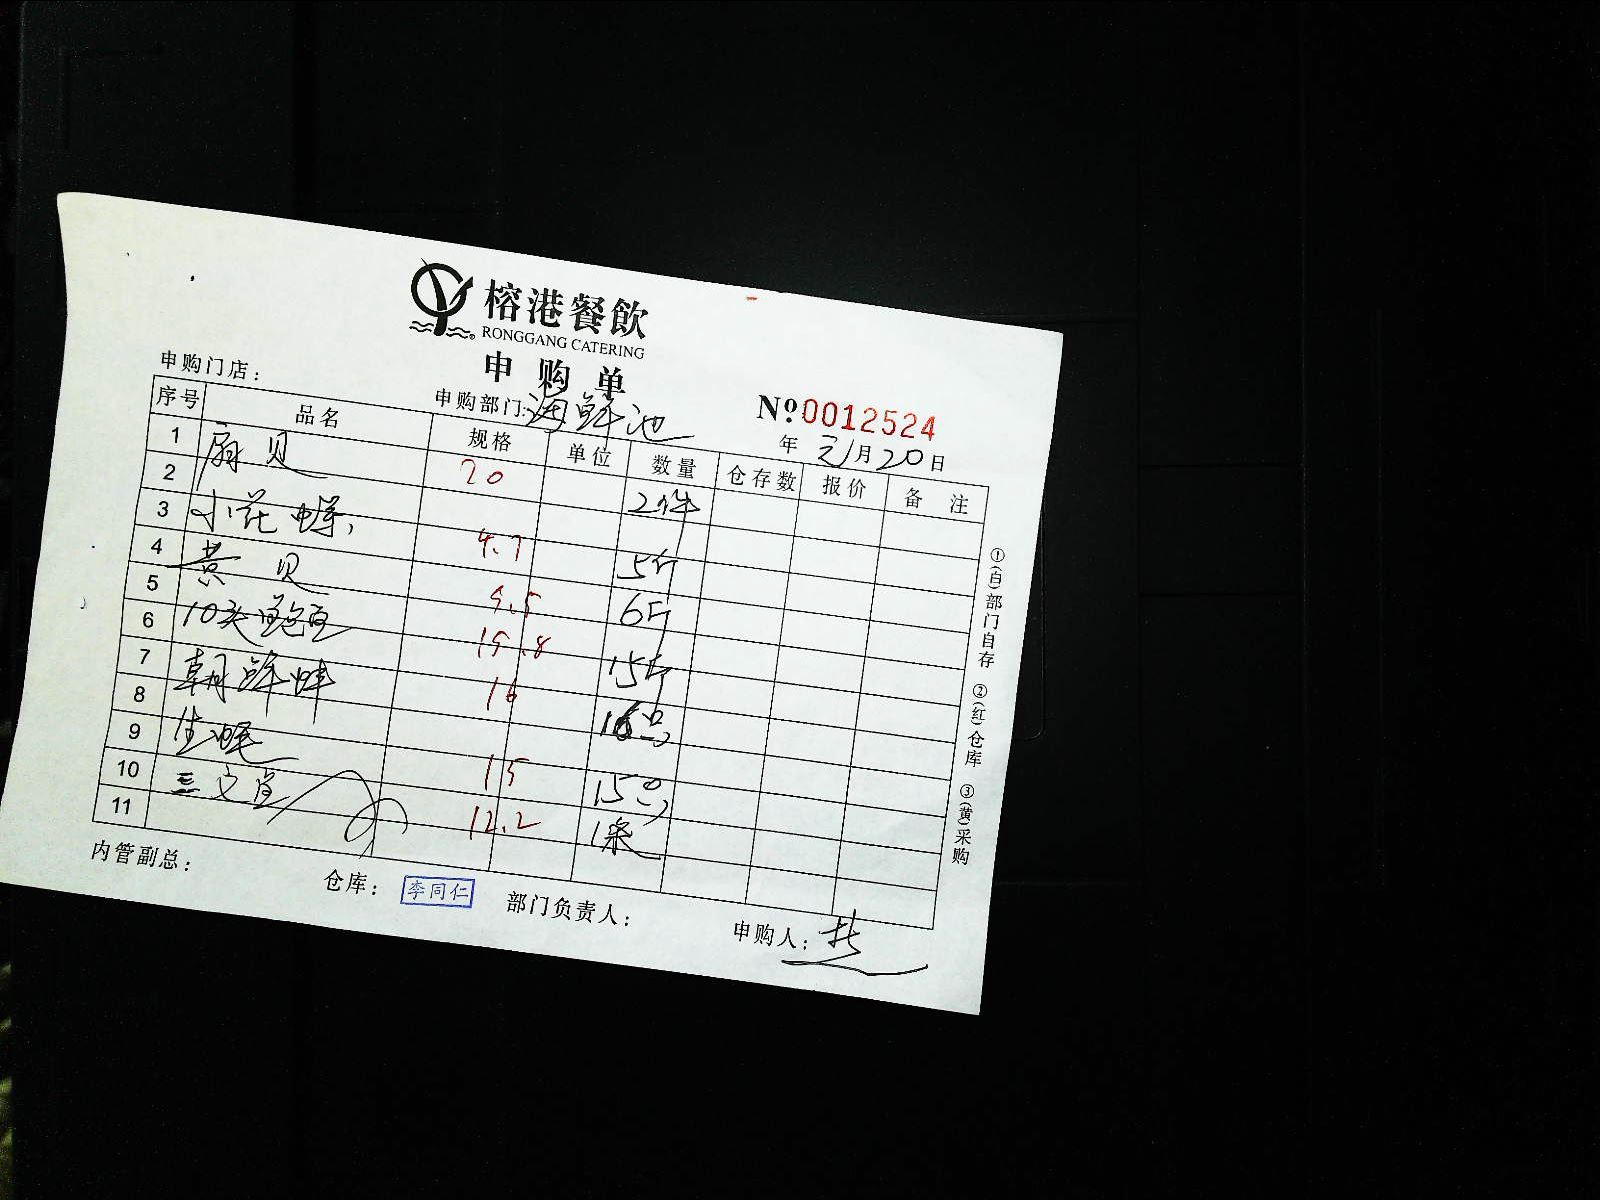 榕港餐飲
RONGGANG CATERING
申购单
申购门店：
申购部门：海鲜池
№0012524
年 元月20日
序号 品名 规格 单位 数量 仓存数 报价 备注
1 扇贝 20 2件
2
3 小花螺 4.7 5斤
4 黄贝 9.5 6斤
5
6 10头鲍鱼 19.8 15斤
7 朝鲜蚌 16 16只
8
9 生蚝 15 15只
10 三文鱼 12.2 1条
11
①(白)部门自存 ②(红)仓库 ③(黄)采购
内管副总：
仓库：李同仁
部门负责人：
申购人：